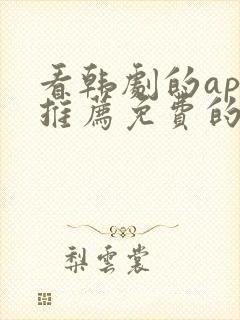 看韩剧的ap
推荐免费的
梨云裳